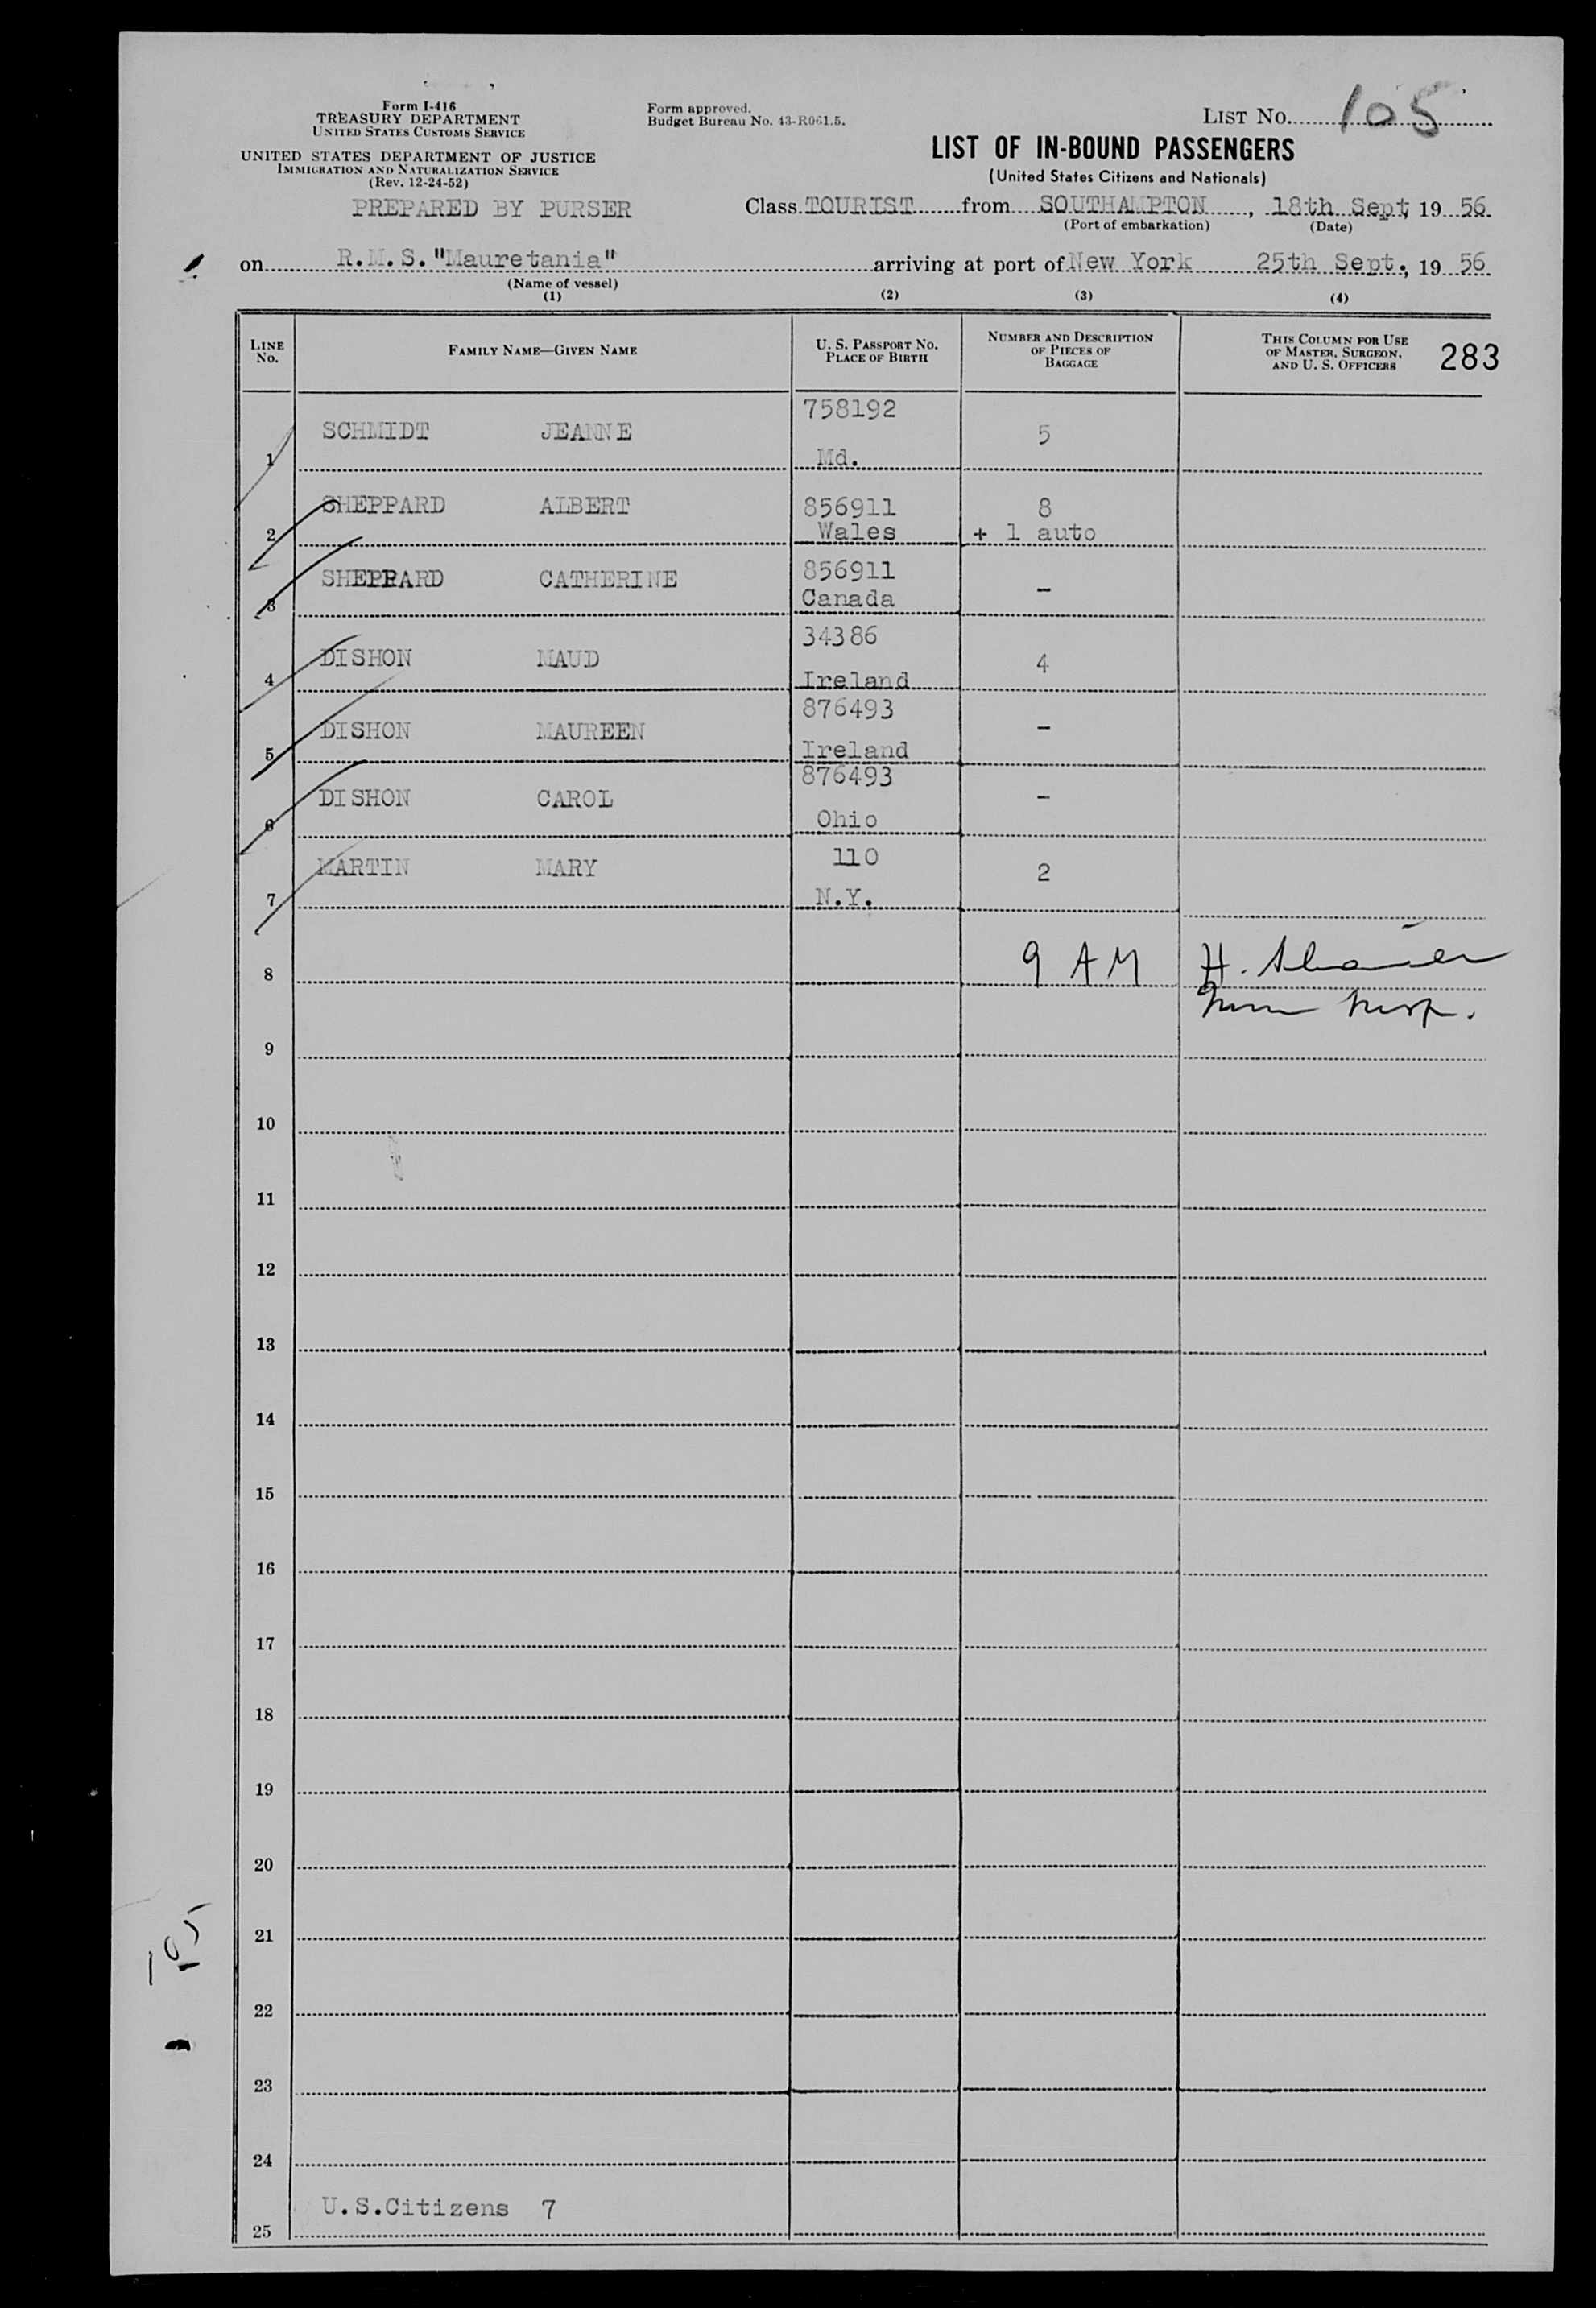 Form I-416
TREASURY DEPARTMENT
UNITED STATES CUSTOMS SERVICE
UNITED STATES DEPARTMENT OF JUSTICE
IMMIGRATION AND NATURALIZATION SERVICE
(Rev. 12-24-52)
PREPARED BY PURSER
Form approved.
Budget Bureau No. 43-R061.5.
LIST No. 105
LIST OF IN-BOUND PASSENGERS
(United States Citizens and Nationals)
Class TOURIST from SOUTHAMPTON, 18th Sept, 19 56
(Port of embarkation) (Date)
on R.M.S."Mauretania" arriving at port of New York 25th Sept., 19 56
(Name of vessel)
(1) (2) (3) (4)
LINE No. FAMILY NAME—GIVEN NAME U. S. PASSPORT No. PLACE OF BIRTH NUMBER AND DESCRIPTION OF PIECES OF BAGGAGE THIS COLUMN FOR USE OF MASTER, SURGEON, AND U. S. OFFICERS 283
1 SCHMIDT JEANNE 758192 Md. 5
2 SHEPPARD ALBERT 856911 Wales 8 + 1 auto
3 SHEPPARD CATHERINE 856911 Canada -
4 DISHON MAUD 34386 Ireland 4
5 DISHON MAUREEN 876493 Ireland -
6 DISHON CAROL 876493 Ohio -
7 MARTIN MARY 110 N.Y. 2
8 9 AM H.
9
10
11
12
13
14
15
16
17
18
19
20
21
22
23
24
25 U.S.Citizens 7
105